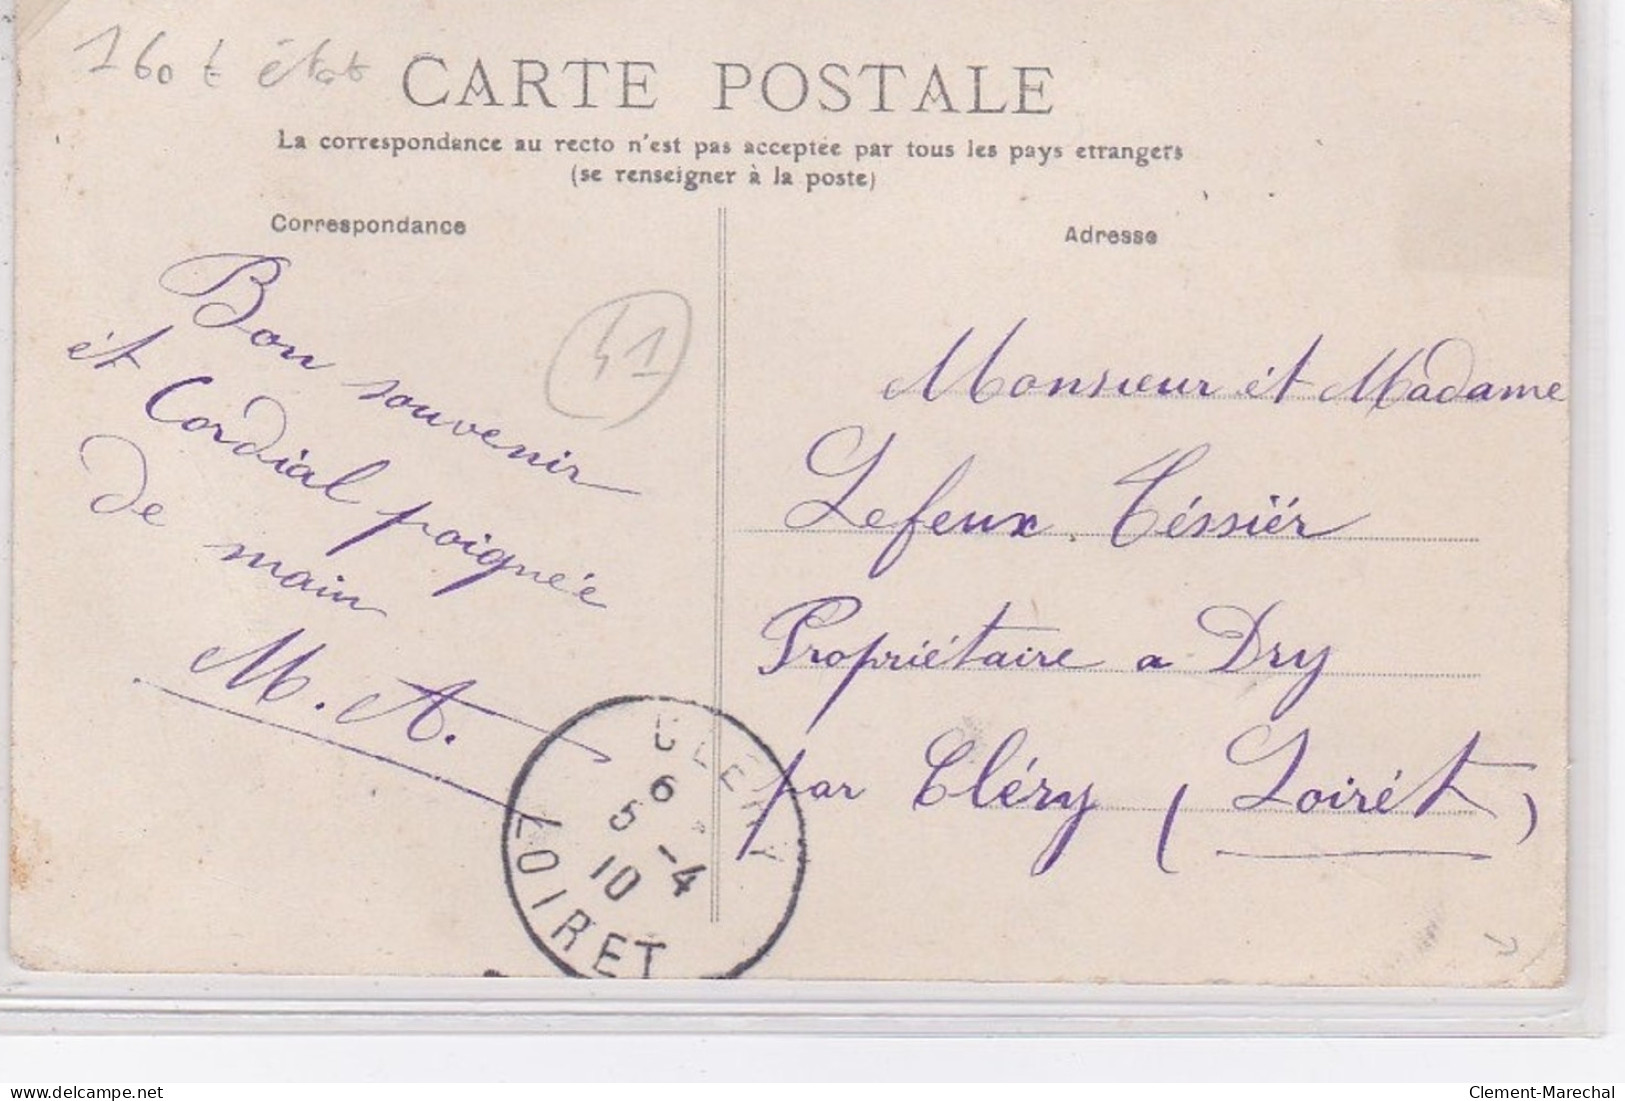 160 t état
CARTE POSTALE
La correspondance au recto n'est pas acceptée par tous les pays etrangers
(se renseigner à la poste)
Correspondance
Adresse
Bon souvenir
ét Cordial poignée
de main
M. A.
41
Monsieur ét Madame
Lefeux. Téssiër
Propriétaire a Dry
par Cléry (Loirét)
CLERY
6
5 -4
10
LOIRET
delcampe.net
Clement-Marechal